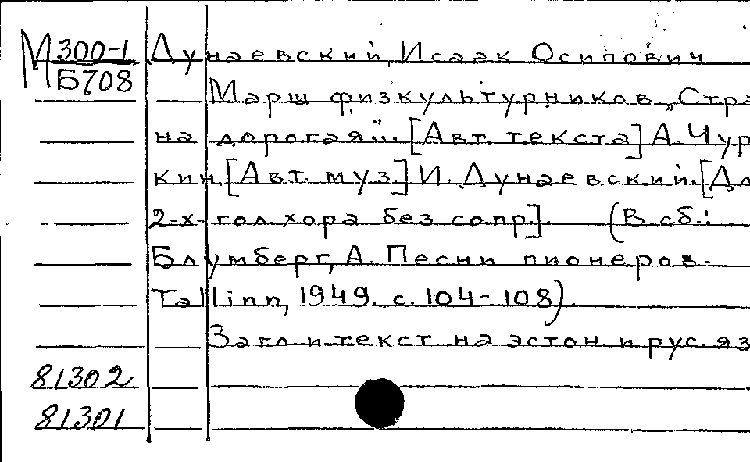 М 300-1 Дунаевский, Исаак Осипович
Б708
Марш физкультурников „Стра
на дорогая". [Авт. текста] А. Чур
кин. [Авт. муз.] И. Дунаевский. [Дл
2-х-гол. хора без сопр]. (В сб.:
Блумберг, А. Песни пионеров.
Tallinn, 1949. с. 104-108).
Загл и текст на эстон и рус. яз
81302
81301